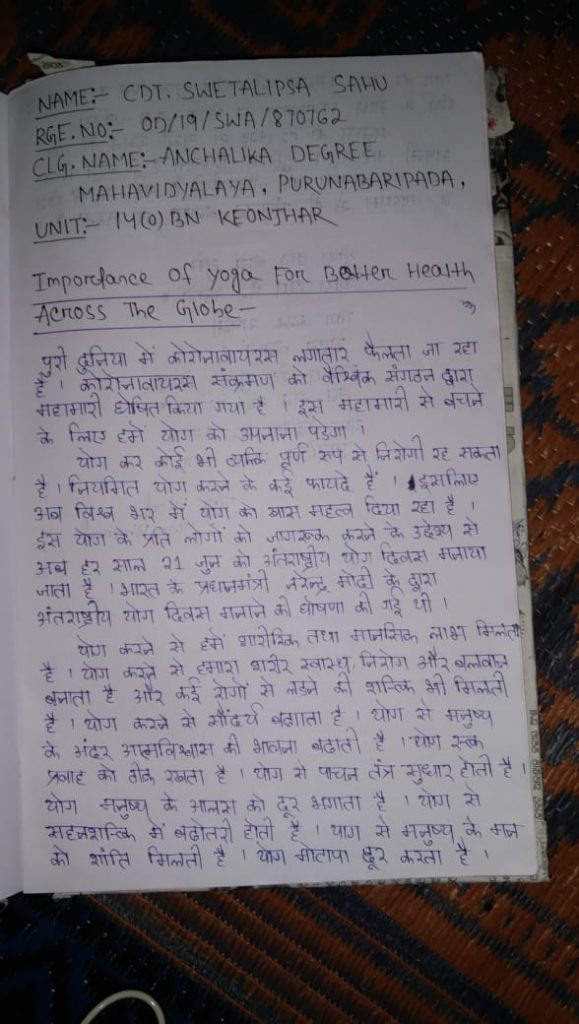 NAME:- CDT. SWETALIPSA SAHU
RGE.NO:- OD/19/SWA/870762
CLG. NAME:- ANCHALIKA DEGREE
MAHAVIDYALAYA, PURUNABARIPADA,
UNIT:- 14(O) BN KEONJHAR
Importance Of Yoga For Better Health
Across The Globe-
पुरी दुनिया में कोरोनावायरस लगातार फैलता जा रहा
है। कोरोनावायरस संक्रमण को वैश्विक संगठन द्वारा
महामारी घोषित किया गया है। इस महामारी से बचने
के लिए हमें योग को अपनाना पडेगा।
योग कर कोई भी व्यक्ति पूर्ण रूप से निरोगी रह सकता
है। नियमित योग करने के कई फायदे हैं। इसलिए
अब विश्व भर में योग को खास महत्व दिया रहा है।
इस योग के प्रति लोगों को जागरूक करने के उद्देश्य से
अब हर साल 21 जुन को अंतराष्ट्रीय योग दिवस मनाया
जाता है। भारत के प्रधानमंत्री नरेन्द्र मोदी के द्वारा
अंतराष्ट्रीय योग दिवस मनाने की घोषणा की गई थी।
योग करने से हमें शारीरिक तथा मानसिक लाभ मिलता
है। योग करने से हमारा शरीर स्वास्थ, निरोग और बलवान
बनाता है और कई रोगों से लडने की शक्ति भी मिलती
है। योग करने से सौंदर्य बढाता है। योग से मनुष्य
के अंदर आत्मविश्वास की भावना बढाती है। योग रक्त
प्रवाह को ठीक रखता है। योग से पाचन तंत्र सुधार होती है।
योग मनुष्य के आलस को दूर भगाता है। योग से
सहनशक्ति में बढोतरी होती है। योग से मनुष्य के मन
को शांति मिलती है। योग मोटापा दूर करता है।